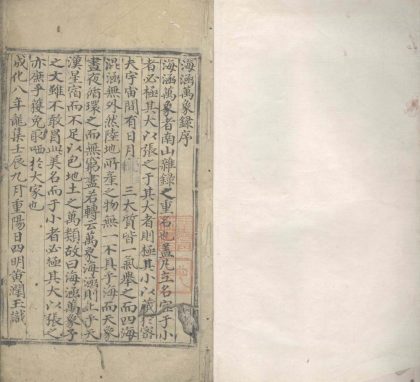 海涵萬象錄序
海涵萬象者南山雜錄之重名也蓋凡立名字于小
者必極其大以張之于其大者則極其小以藏
夫宇宙間有日月 三大質皆一氣舉之而四海
混涵無外然陸地所產之物無一不具于海而天象
晝夜循環之而無窮盡若轉云萬象海涵則上乎天
漢星宿而不足以包地土之萬類故曰海涵萬象予
之文雖不敢爲此美名而于小者必極其大以張之
亦庶乎獲免 哂於大家也
成化八年龍集壬辰九月重陽日四明黃潤玉識